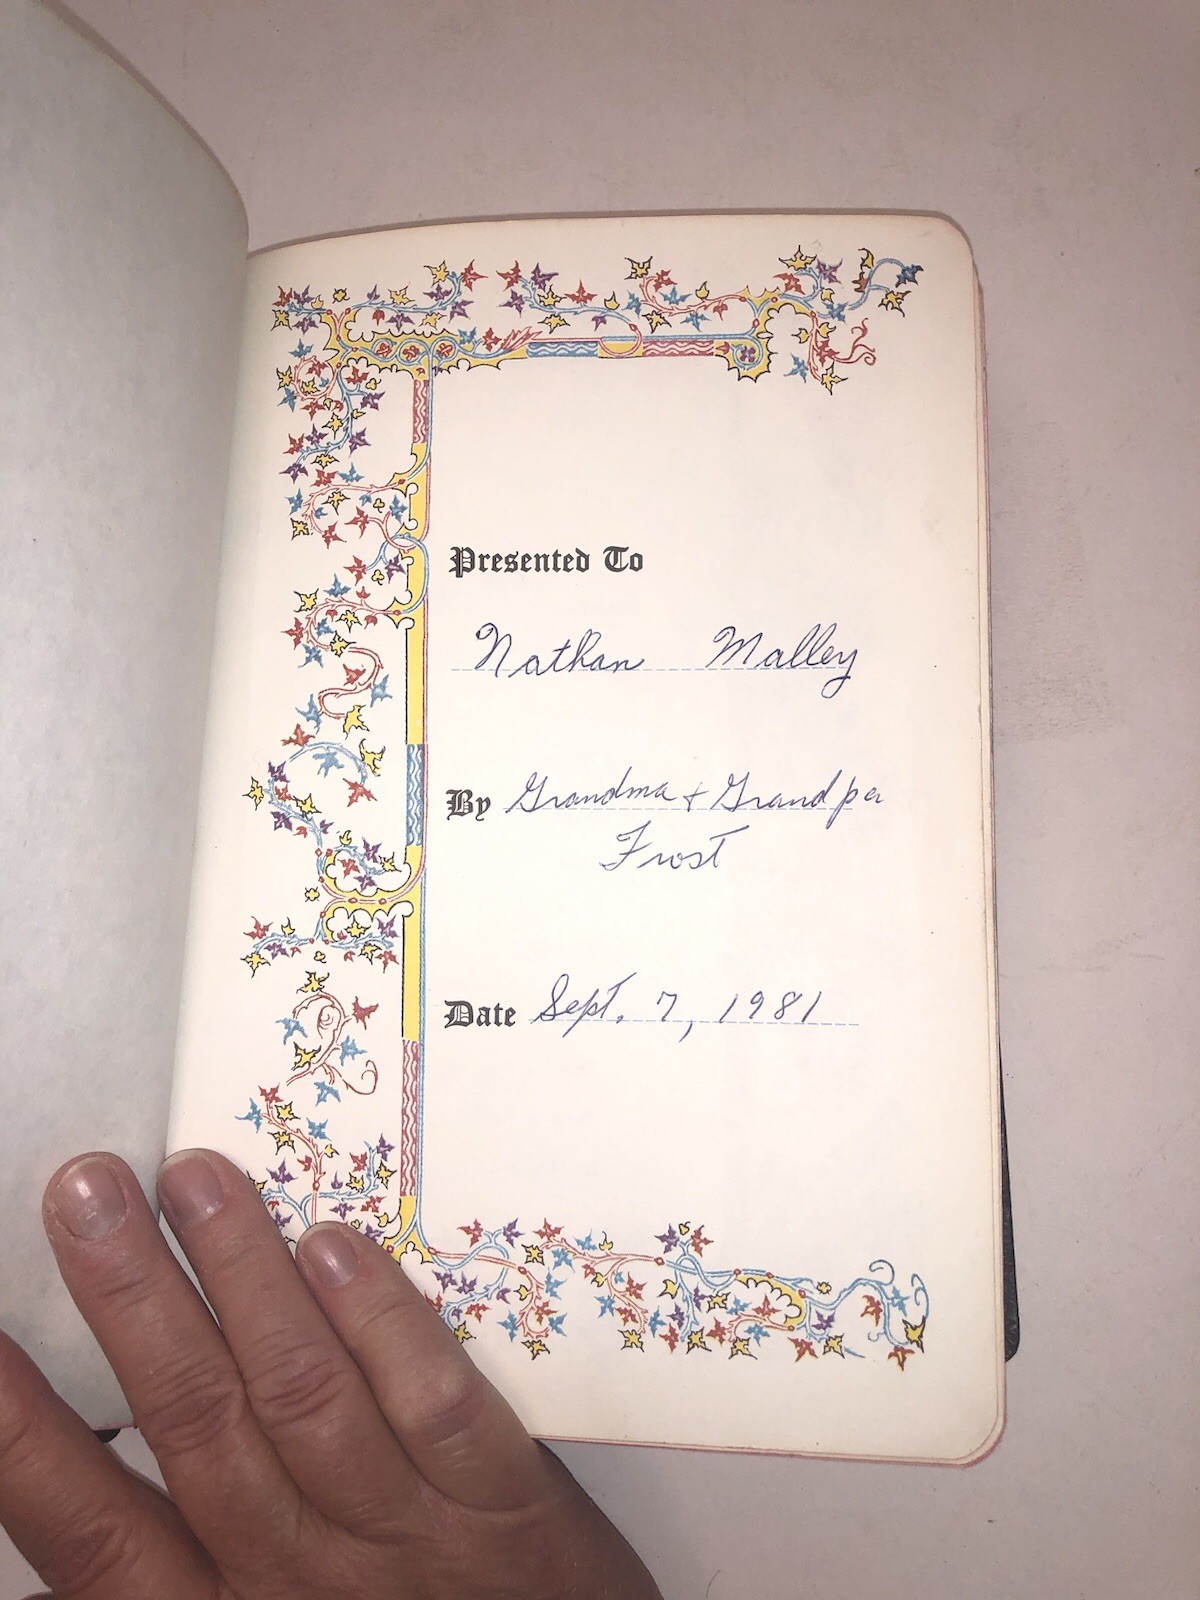 Presented To
Nathan Malley
By Grandma + Grandpa
Frost
Date Sept. 7, 1981